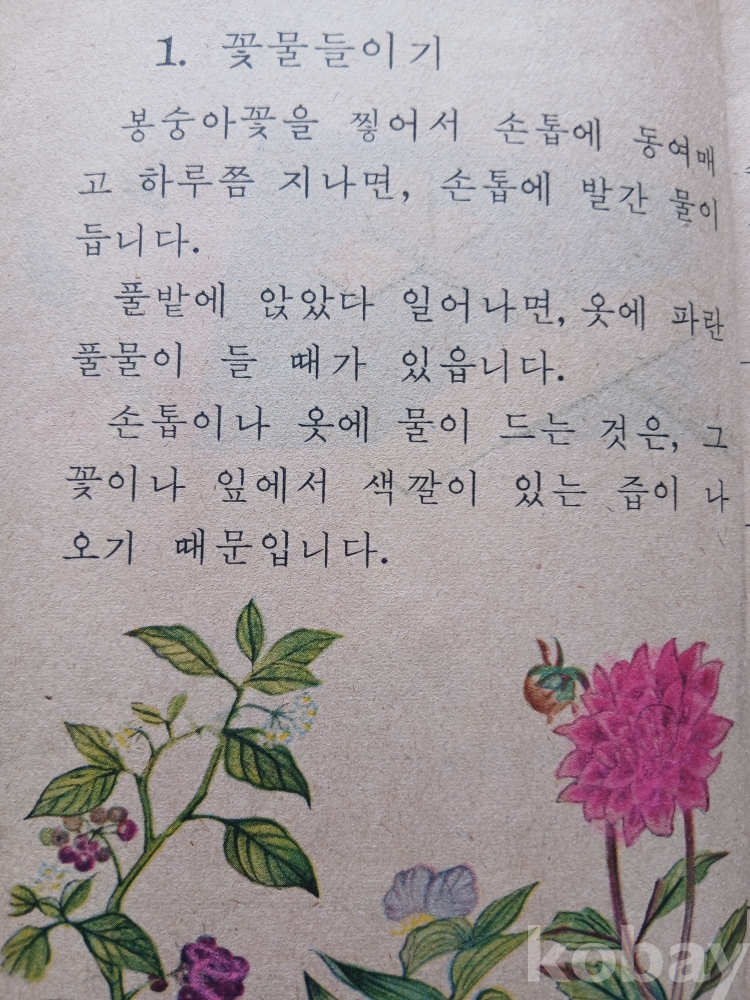 1. 꽃물들이기
봉숭아꽃을 찧어서 손톱에 동여매
고 하루쯤 지나면, 손톱에 발간 물이
듭니다.
풀밭에 앉았다 일어나면, 옷에 파란
풀물이 들 때가 있읍니다.
손톱이나 옷에 물이 드는 것은, 그
꽃이나 잎에서 색깔이 있는 즙이 나
오기 때문입니다.
kobay